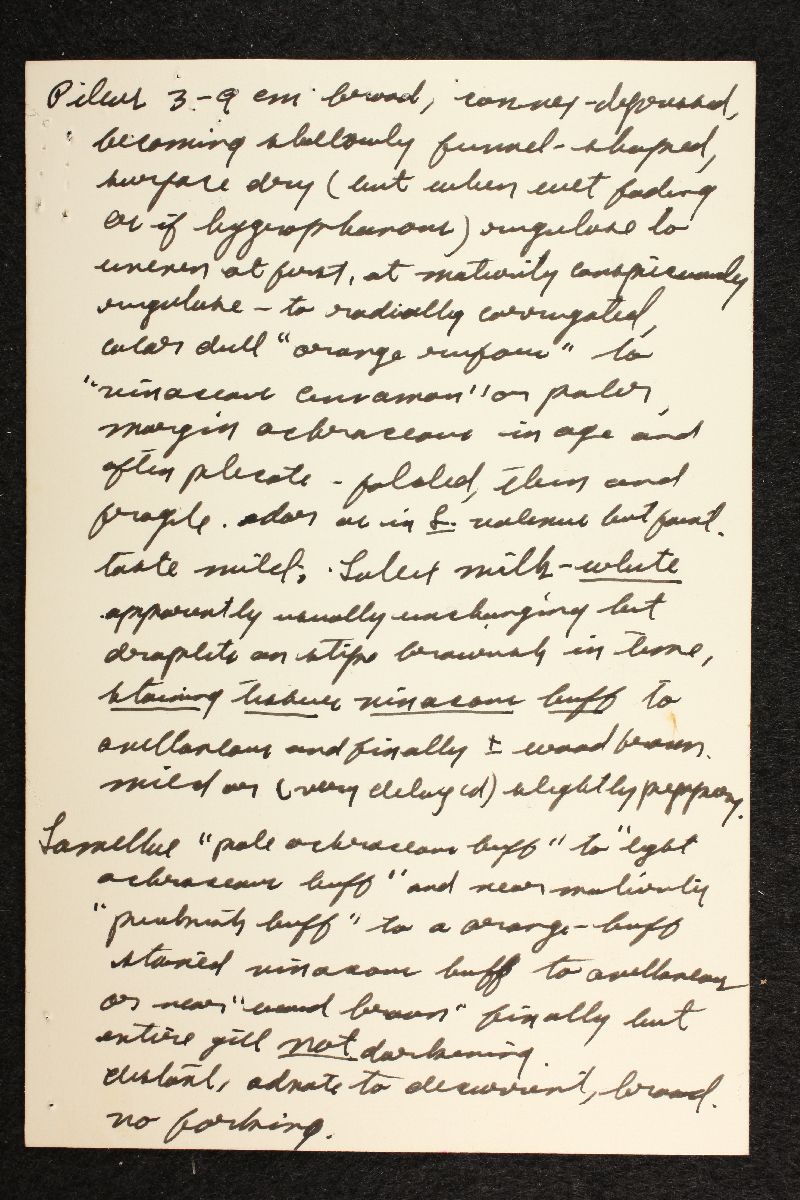 Pileus 3-9 cm broad, convex-depressed,
becoming shallowly funnel-shaped,
surface dry (but when wet fading
as if hygrophanous) rugulose to
uneven at first, at maturity conspicuously
rugulose - to radially corrugated,
color dull "orange rufous" to
"vinaceous cinnamon" or paler,
margin ochraceous in age and
often plicate - folded, thin and
fragile. odor as in L. but faint.
taste mild; Latex milk-white
apparently usually unchanging but
droplets on stipe brownish in time,
staining tissues vinaceous buff to
avellaneous and finally ± wood brown.
mild or (very delayed) slightly peppery.
Lamellae "pale ochraceous buff" to "light
ochraceous buff" and near maturity
"pinkish buff" to a orange-buff
stained vinaceous buff to avellaneous
or near "wood brown" finally but
entire gill not darkening
distant, adnate to decurrent, broad.
no forking.